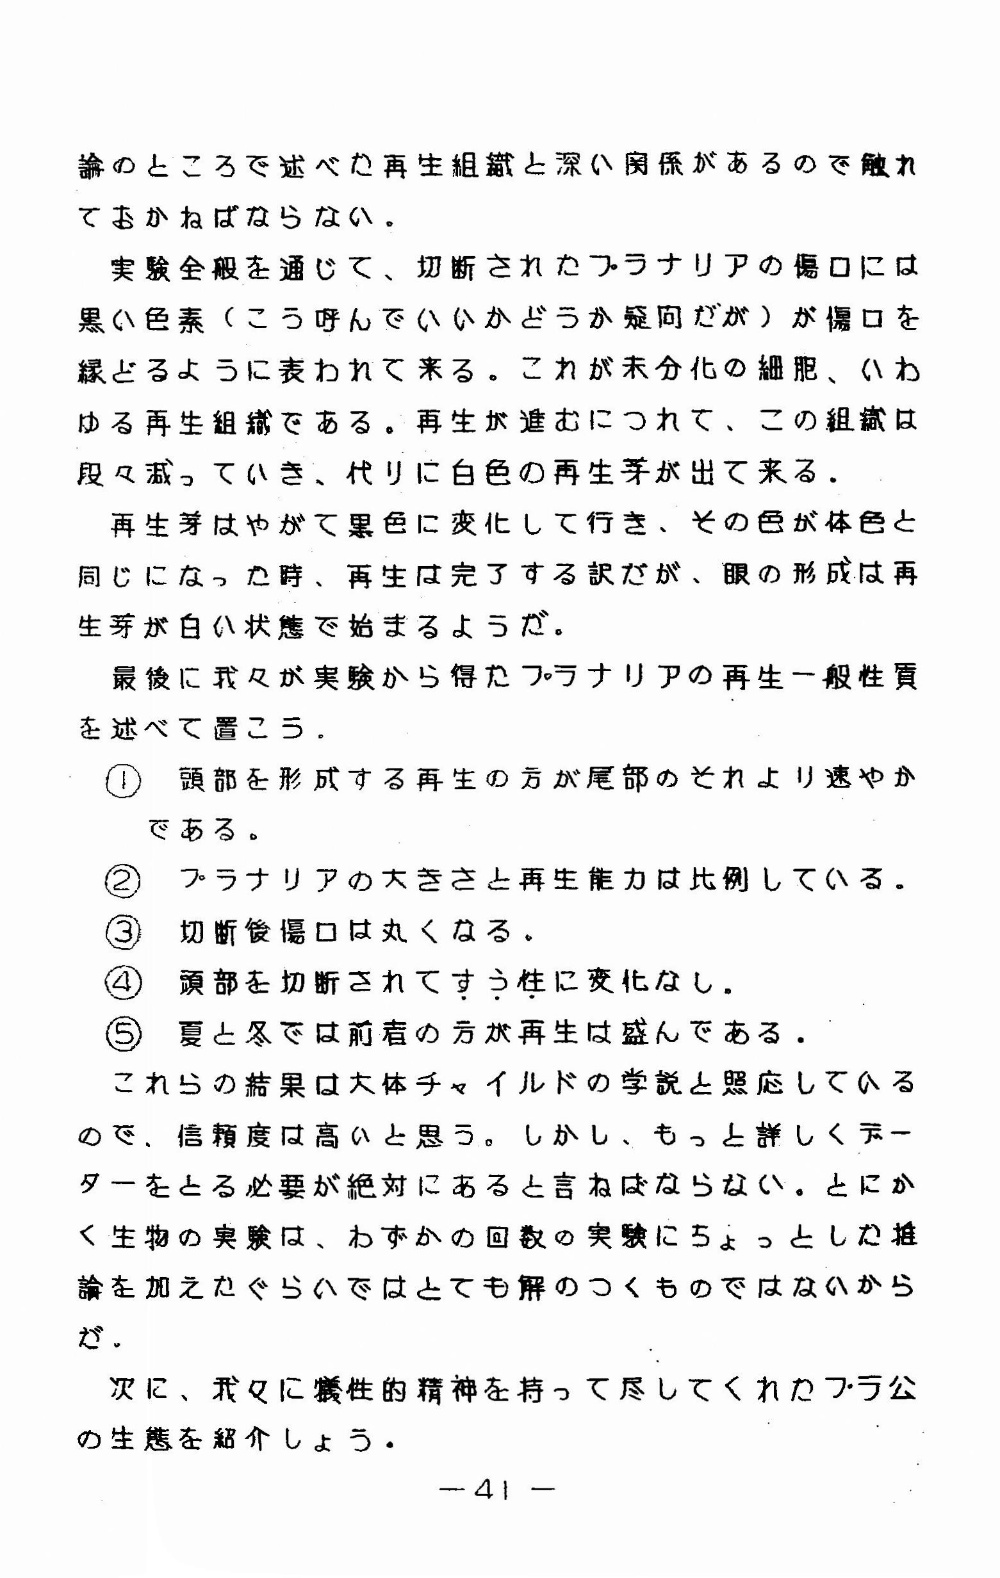 論のところで述べた再生組織と深い関係があるので触れ
ておかねばならない。
実験全般を通じて、切断されたプラナリアの傷口には
黒い色素(こう呼んでいいかどうか疑問だが)が傷口を
縁どるように表われて来る。これが未分化の細胞、いわ
ゆる再生組織である。再生が進むにつれて、この組織は
段々減っていき、代りに白色の再生芽が出て来る。
再生芽はやがて黒色に変化して行き、その色が体色と
同じになった時、再生は完了する訳だが、眼の形成は再
生芽が白い状態で始まるようだ。
最後に我々が実験から得たプラナリアの再生一般性質
を述べて置こう。
① 頭部を形成する再生の方が尾部のそれより速やか
である。
② プラナリアの大きさと再生能力は比例している。
③ 切断後傷口は丸くなる。
④ 頭部を切断されてすう性に変化なし。
⑤ 夏と冬では前者の方が再生は盛んである。
これらの結果は大体チャイルドの学説と照応している
ので、信頼度は高いと思う。しかし、もっと詳しくデー
ターをとる必要が絶対にあると言ねばならない。とにか
く生物の実験は、わずかの回数の実験にちょっとした推
論を加えたぐらいではとても解のつくものではないから
だ。
次に、我々に犠性的精神を持って尽してくれたプラ公
の生態を紹介しょう。
—41—